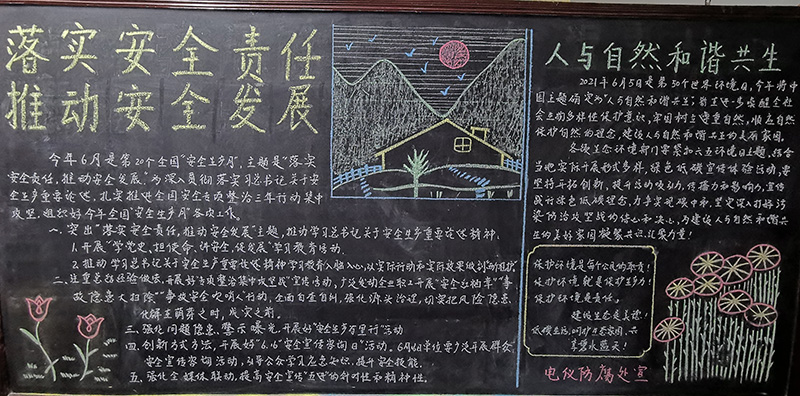 落实安全责任
推动安全发展
今年6月是第20个全国"安全生产月",主题是"落实
安全责任,推动安全发展",为深入贯彻落实习总书记关于安
全生产重要论述,扎实推进全国安全专项整治三年行动集中
攻坚,组织好今年全国"安全生产月"各项工作。
一、突出"落实安全责任,推动安全发展"主题,推动学习总书记关于安全生产重要论述精神。
1.开展"学党史、担使命、讲安全、促发展"学习教育活动。
2.推动学习总书记关于安全生产重要论述精神学习教育入脑入心,以实际行动和实际效果做到
二、注重总结经验做法,开展好专项整治集中攻坚战"宣传活动,广泛发动全员职工开展"安全
故隐患大扫除""争做安全吹哨人"行动,全面自查自纠,强化源头治理,切实把风险隐患
化解在萌芽之时、成灾之前。
三、强化问题隐患、警示曝光,开展好"安全生产万里行"活动
四、创新方式方法,开展好"6.16"安全宣传咨询日"活动。6月份单位要广泛开展群众
安全宣传咨询活动,引导公众学习应急知识,提升安全技能。
五、强化全媒体联动,提高安全宣传"五进"的针对性和精准性。
人与自然和谐共生
2021年6月5日是第50个世界环境日,今年将中
国主题确定为"人与自然和谐共生",旨在进一步唤醒全社
会生物多样性保护意识,牢固树立尊重自然、顺应自然
保护自然的理念,建设人与自然和谐共生的美丽家园。
各级生态环境部门要紧扣六五环境日主题,结合
当地实际开展形式多样、绿色低碳宣传体验活动,要
坚持开拓创新,提升活动吸引力、传播力和影响力,宣传
践行绿色低碳理念,力争实现碳中和,坚定深入打好污
染防治攻坚战的信心和决心,为建设人与自然和谐共
生的美好家园凝聚共识,汇聚力量!
保护环境是每个公民的职责!
保护环境就是保护生产力!
保护环境是责任。
爱护生态是美德!
低碳生活,呵护生态家园,共
享碧水蓝天!
电仪防腐处宣